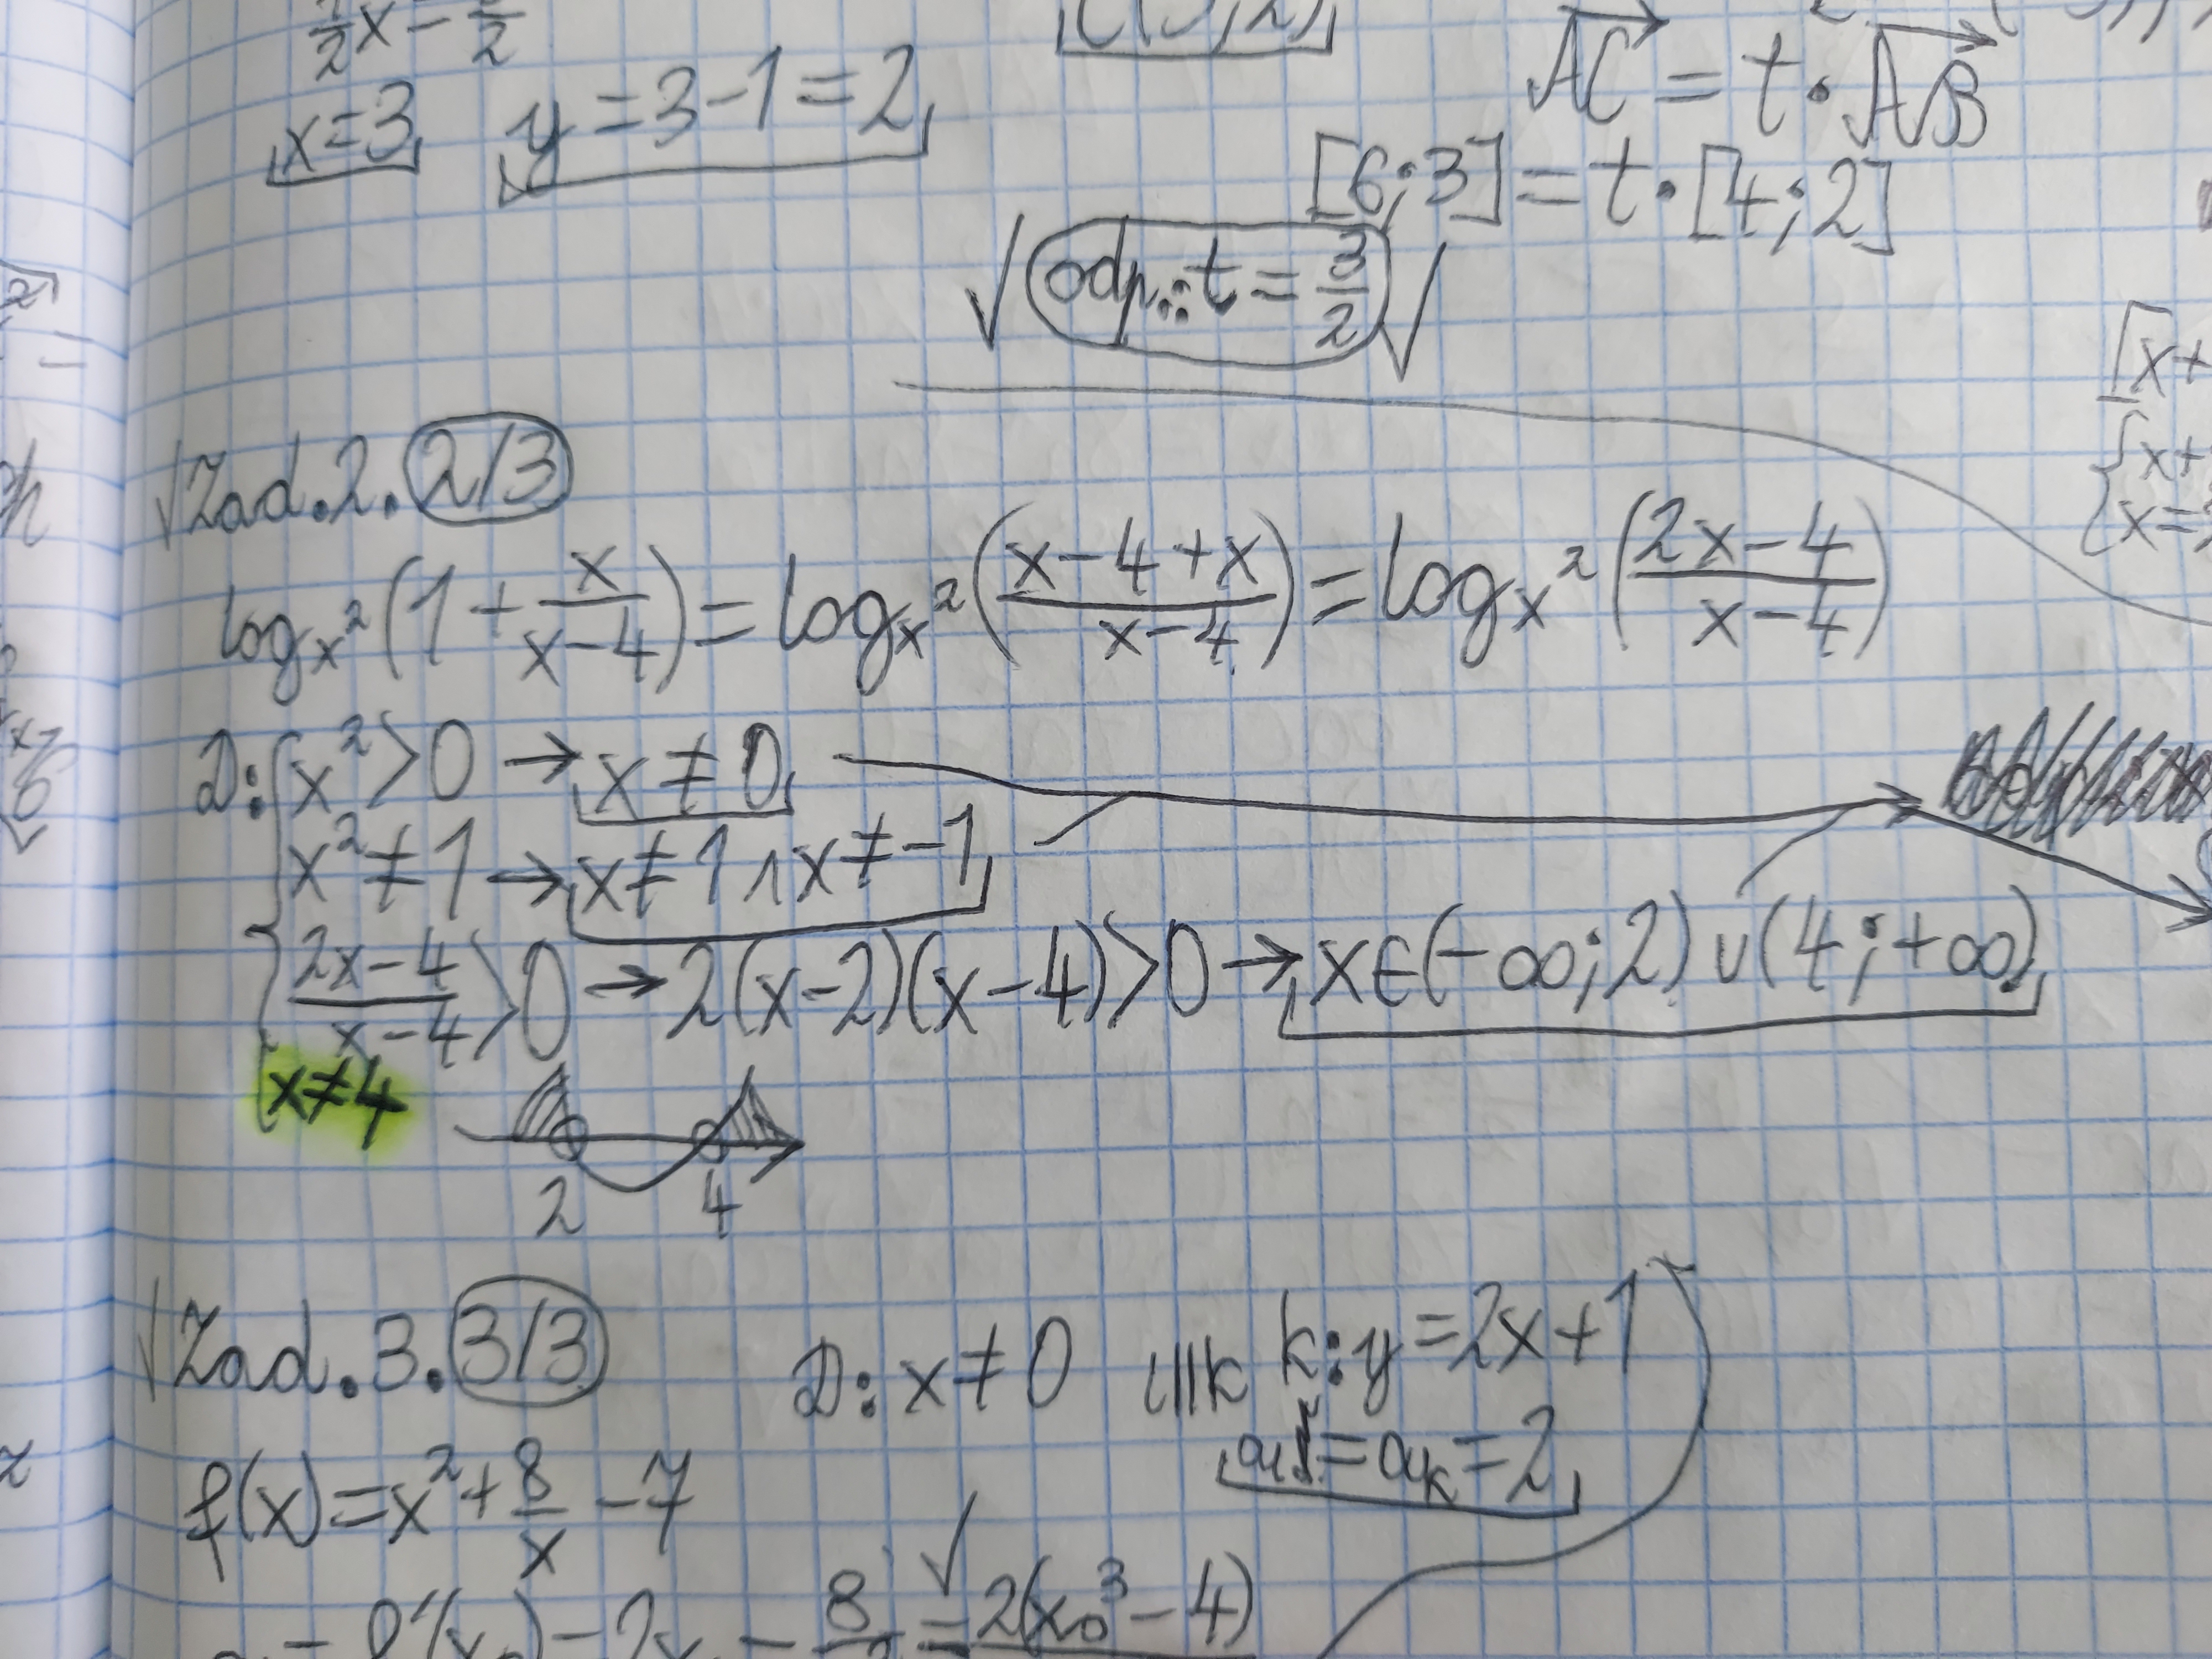 x=3 y=3-1=2
AC = t·AB
[6;3]=t·[4;2]
√ odp.: t = 3/2 √
√Zad.2. 2/3
log_x²(1+x/(x-4)) = log_x²((x-4+x)/(x-4)) = log_x²((2x-4)/(x-4))
D: x²>0 → x≠0
x²≠1 → x≠1 ∧ x≠-1
(2x-4)/(x-4)>0 → 2(x-2)(x-4)>0 → x∈(-∞;2)∪(4;+∞)
x≠4
2 4
√Zad.3. 3/3 D: x≠0 l||k k: y=2x+1
al=ak=2
f(x)=x²+8/x-7